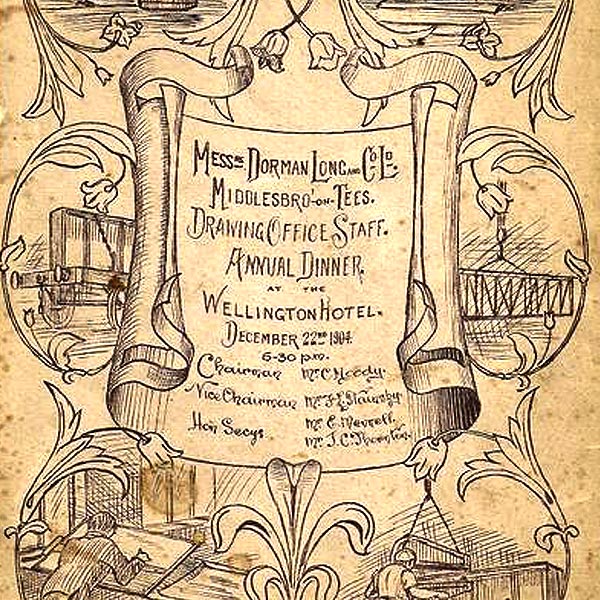 Messrs Dorman Long and Co Ld.
Middlesbro'-on-Tees.
Drawing Office Staff.
Annual Dinner,
at the
Wellington Hotel.
December 22nd 1904.
6-30 p.m.
Chairman Mr C. Moody.
Vice Chairman Mr F. E. Stainsby.
Hon Secys. Mr E. Merrell.
Mr J. C. Thornton.